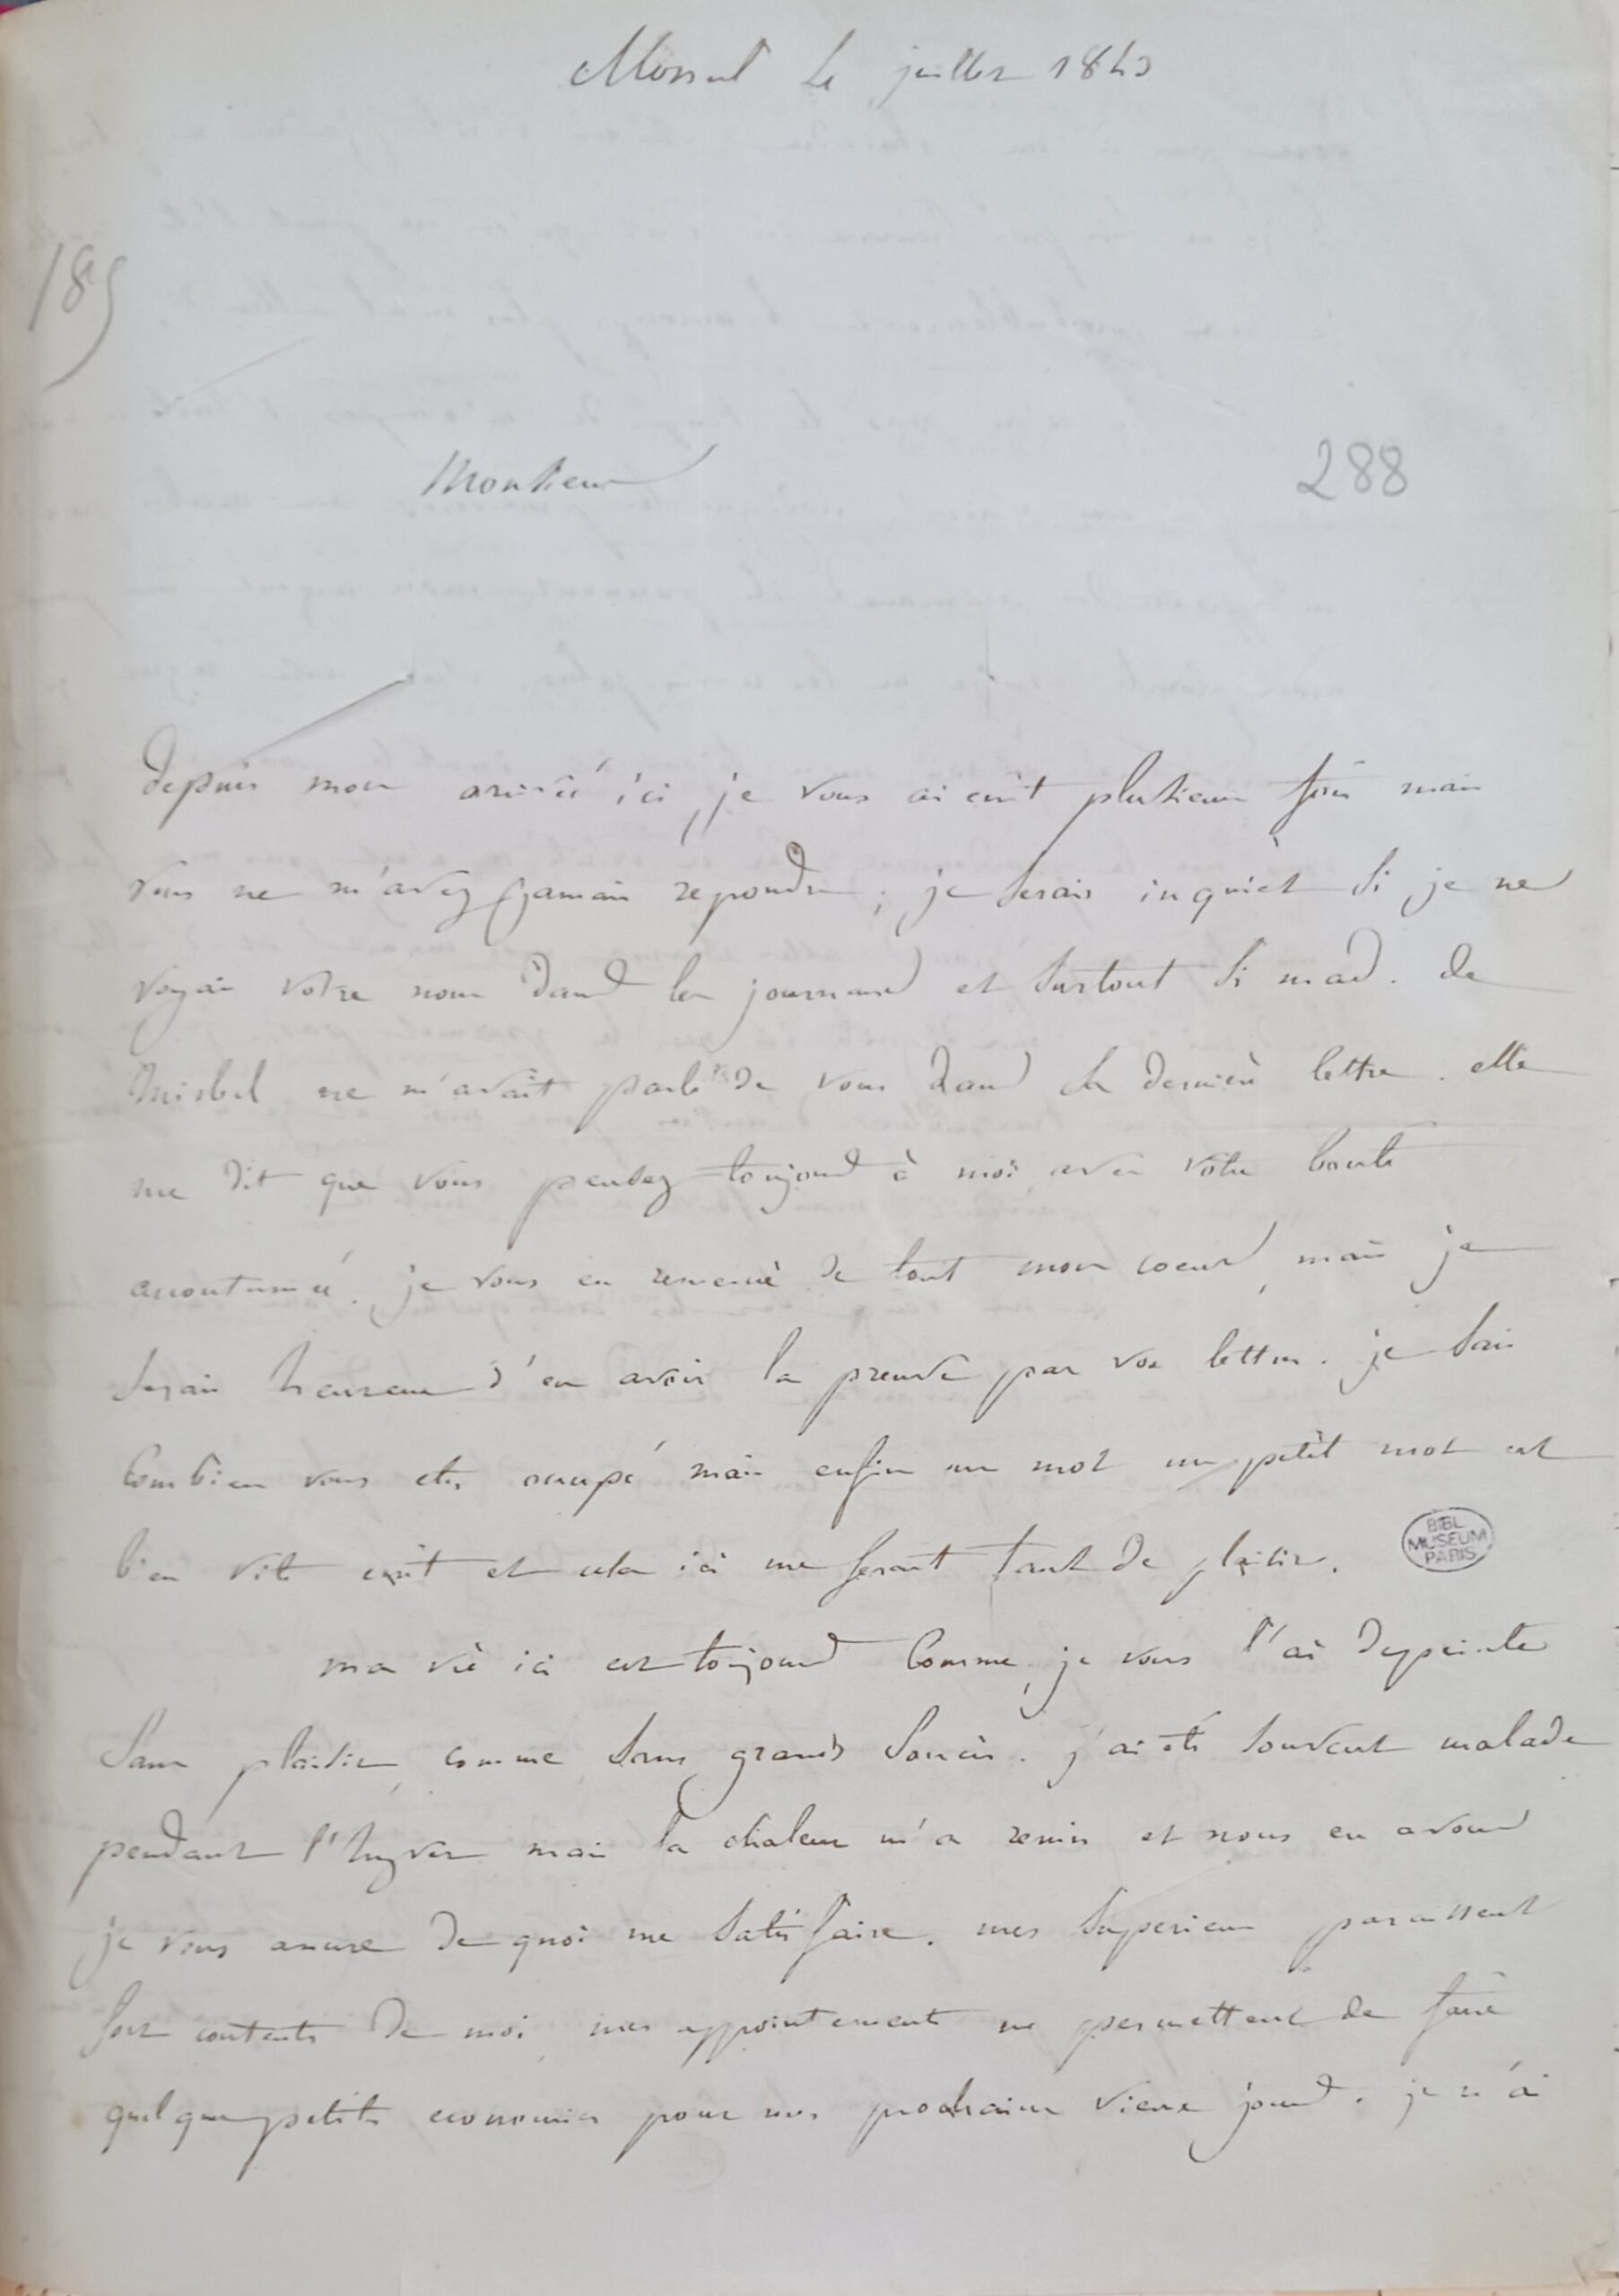 Mossul le juillet 1843
189
Monsieur
288
depuis mon arivéé ici, je vous ai ecrit plusieurs fois mais
vous ne m'avez jamais repondu ; je serais inquièt si je ne
voyais votre nom dans les journaux et surtout si mad. de
ne m'avait parlé de vous dans sa dernière lettre. elle
me dit que vous pensez toujours à moi avec votre bonté
accoutumée. je vous en remercie de tout mon coeur, mais je
serais heureux d'en avoir la preuve par vos lettres. je sais
combien vous etes occupé mais enfin un mot un petit mot est
bien vite ecrit et cela ici me ferait tant de plaisir.
BIBL
MUSEUM
PARIS
ma vie ici est toujours comme je vous l'ai depeinte
sans plaisir, comme sans grands soucis. j'ai été souvent malade
pendant l'hyver mais la chaleur m'a remis et nous en avons
je vous assure de quoi me satisfaire. mes superieurs paraissent
fort contents de moi, mes appointements me permettent de faire
quelques petites economies pour mes prochains vieux jours. je n'ai